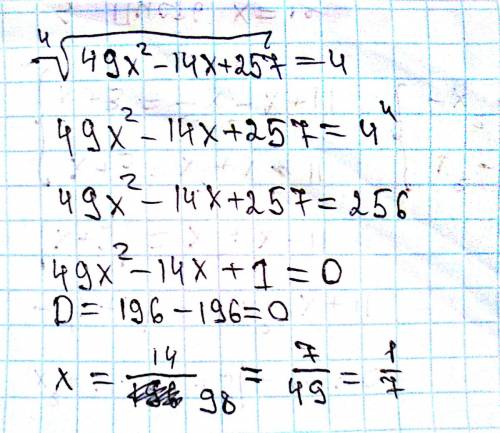 ⁴√49x² - 14x + 257 = 4
49x² - 14x + 257 = 4⁴
49x² - 14x + 257 = 256
49x² - 14x + 1 = 0
D = 196 - 196 = 0
x = 14/98 = 7/49 = 1/7